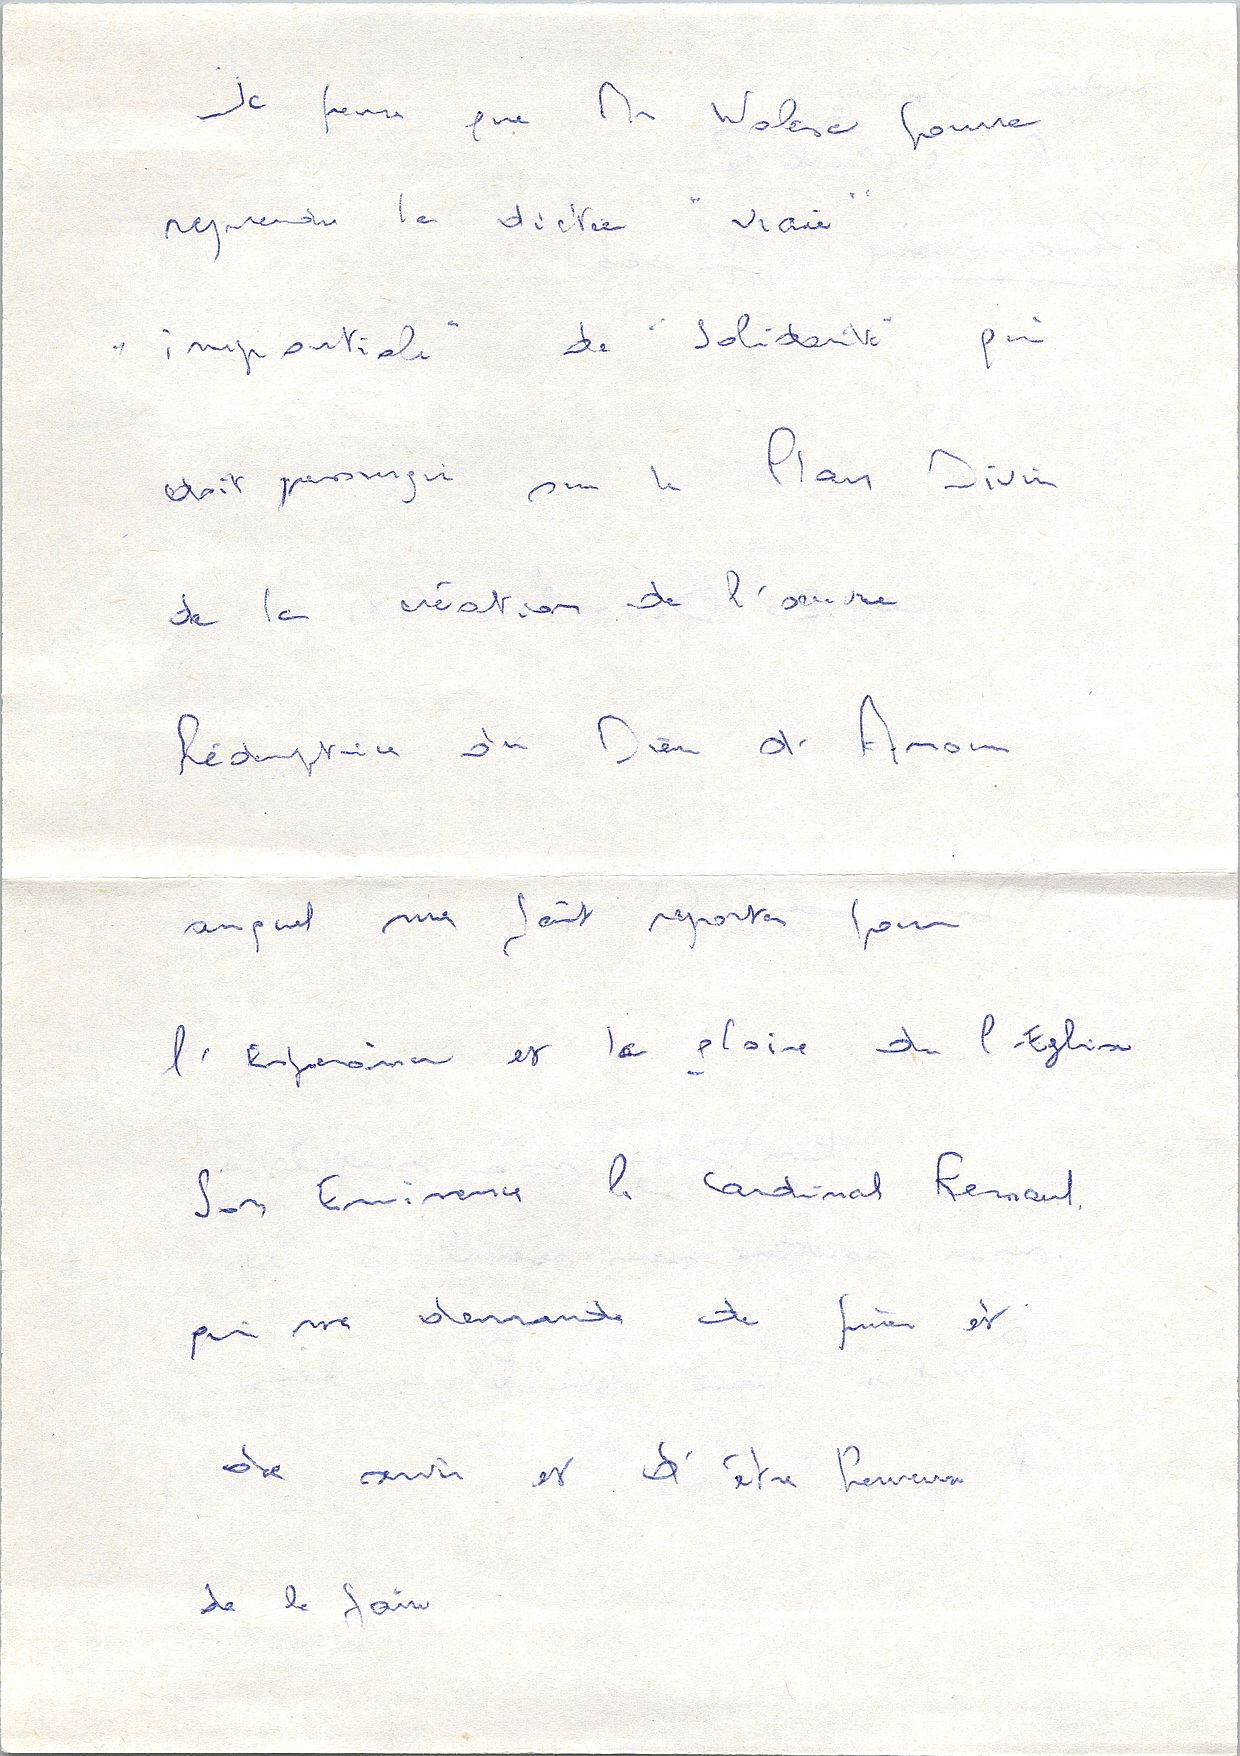 Je pense que Mr Walesa pourra
reprendre la dictée "vraie"
"impartiale" de "Solidarité" qui
doit sur le Plan Divin
de la création de l'oeuvre
Rédemptrice du Dieu d'Amour
auquel me fait reporter pour
l'Espérance et la gloire de l'Eglise
Son Eminence le Cardinal
qui me demande de prier et
de servir et d'être heureux
de le faire